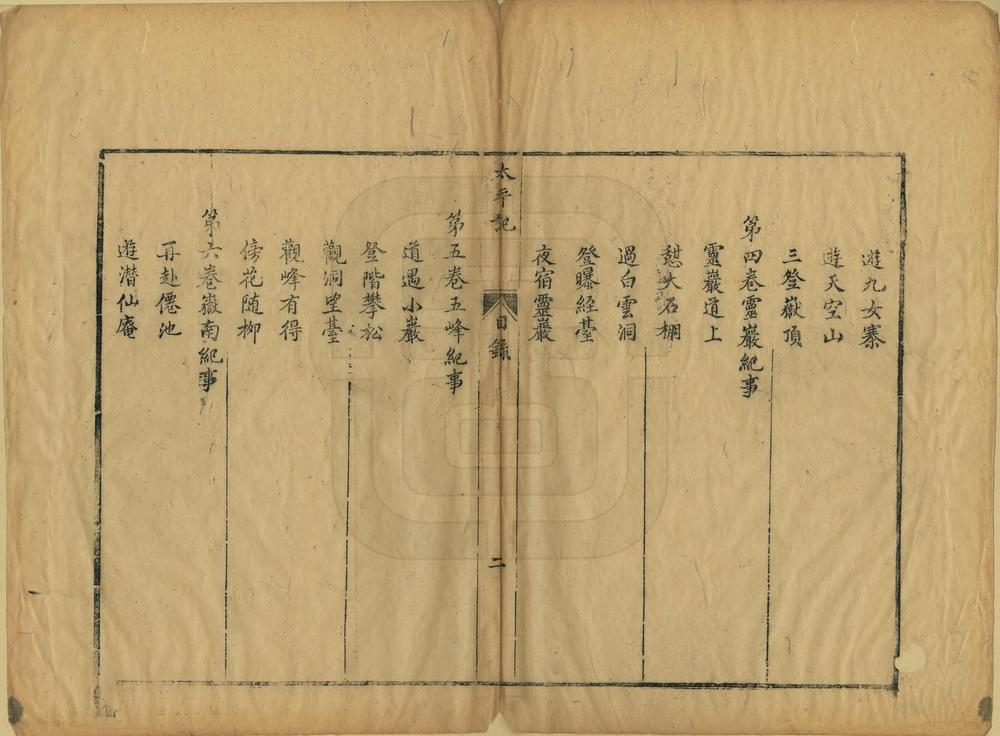 遊九女寨
遊天空山
三登嶽頂
第四卷靈巖紀事
靈巖道上
憇大石棚
過白雲洞
登曝経臺
夜宿靈巖
太平記
目錄
二
第五卷五峰紀事
道遇小巖
登階攀松
觀洞望臺
觀峰有得
傍花随柳
第六卷嶽南紀事
再赴僊池
遊潜仙庵